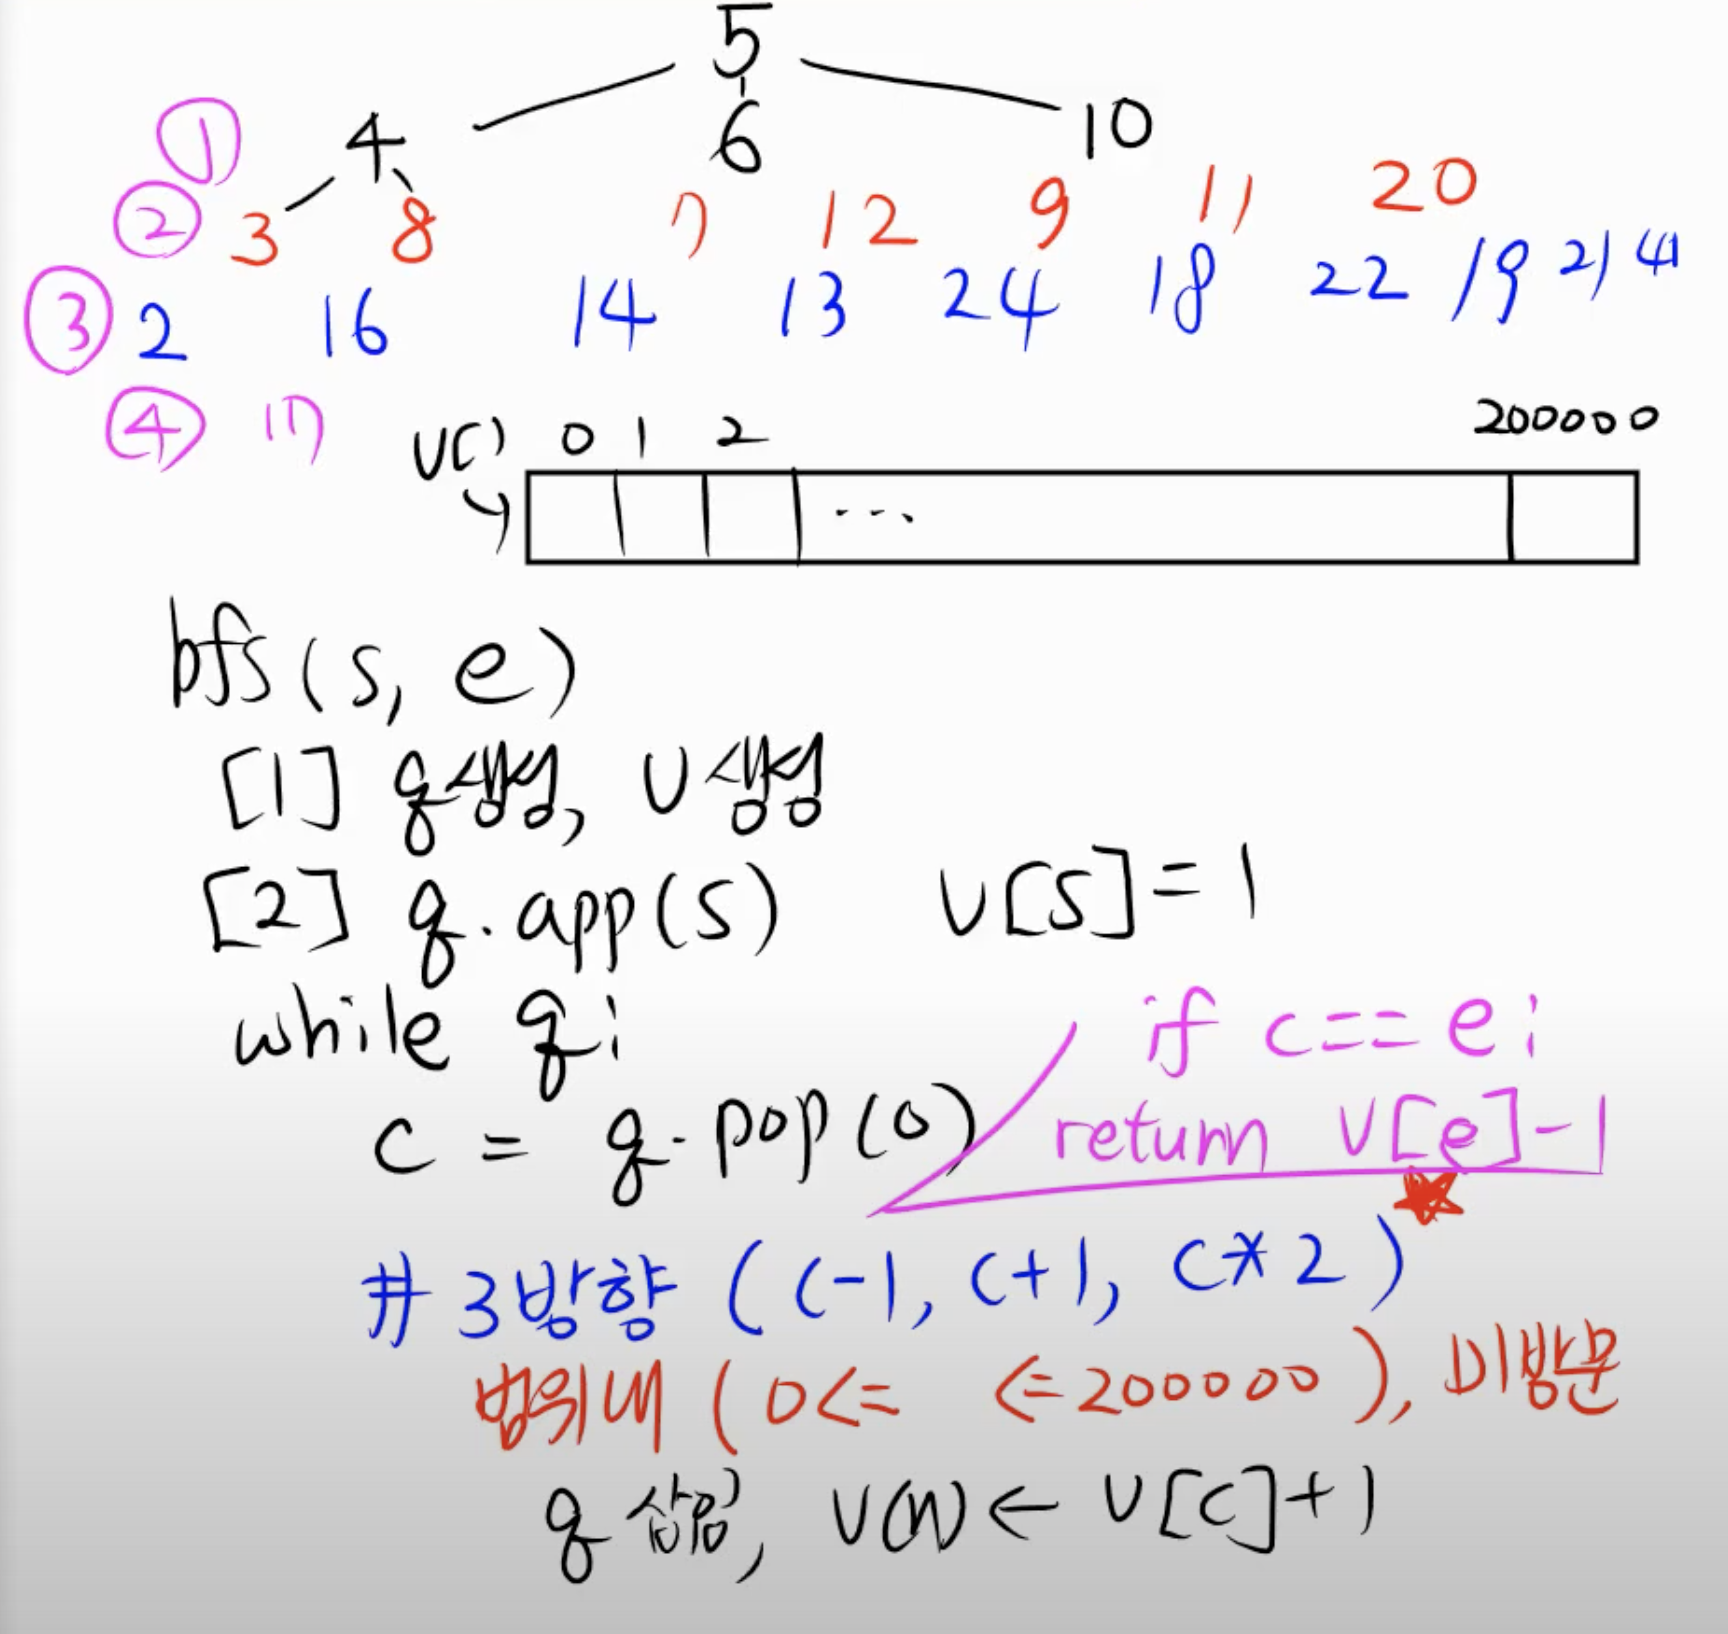 5
① 4 6 10
② 3 8 7 12 9 11 20
③ 2 16 14 13 24 18 22 19 21 41
④ 17
V[] 0 1 2 200000
...
bfs(s, e)
[1] q생성, v생성
[2] q.app(s) v[s]=1
while q:
c = q.pop(0) if c==e:
return v[e]-1
# 3방향 (c-1, c+1, c*2)
범위내 (0<= <=200000), 미방문
q삽입, v[n] ← v[c]+1